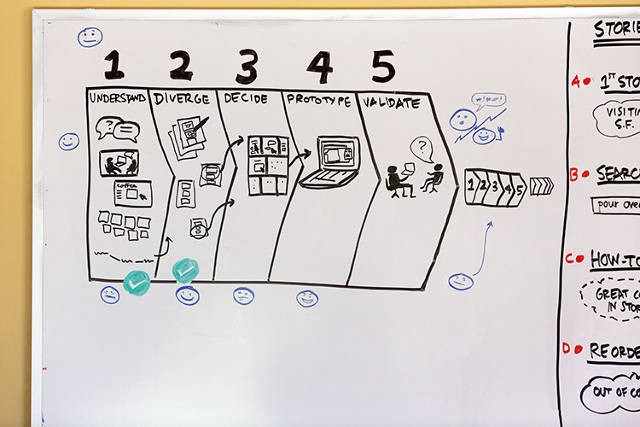 1 2 3 4 5
UNDERSTAND DIVERGE DECIDE PROTOTYPE VALIDATE
COFFEE
?
1 2 3 4 5
STORIE
A 1ST STO
VISITIN
S.F.
B SEARC
POUR OVE
C HOW-TO
GREAT CO
IN STOR
D REORDE
OUT OF CO